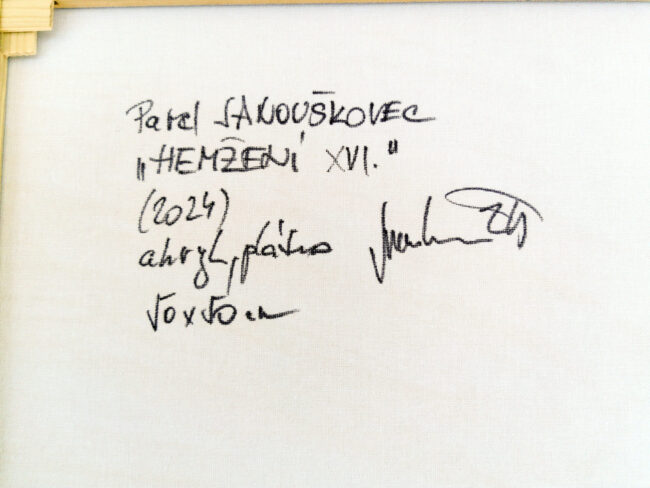 Pavel JANOUŠKOVEC
„HEMŽENÍ XVI.“
(2024)
akryl, plátno
50x50cm